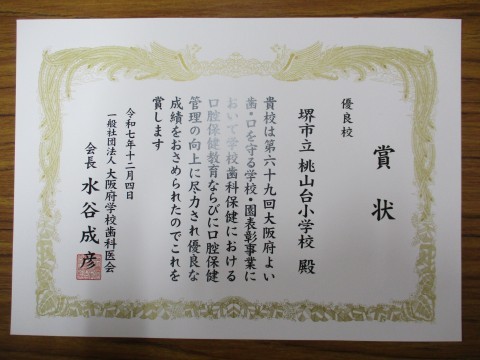 賞状
優良校
堺市立 桃山台小学校 殿
貴校は第六十九回大阪府よい
歯・口を守る学校・園表彰事業に
おいて学校歯科保健における
口腔保健教育ならびに口腔保健
管理の向上に尽力され優良な
成績をおさめられたのでこれを
賞します
令和七年十二月四日
一般社団法人 大阪府学校歯科医会
会長 水谷成彦